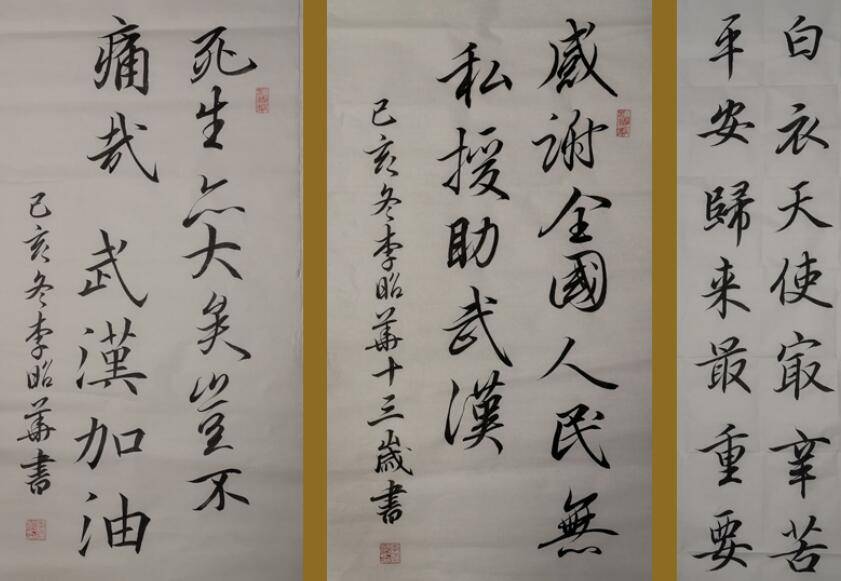 死生亦大矣豈不
痛哉 武漢加油
己亥冬李昭華書
感謝全國人民無
私援助武漢
己亥冬李昭華十三歲書
白衣天使冣辛苦
平安歸来最重要